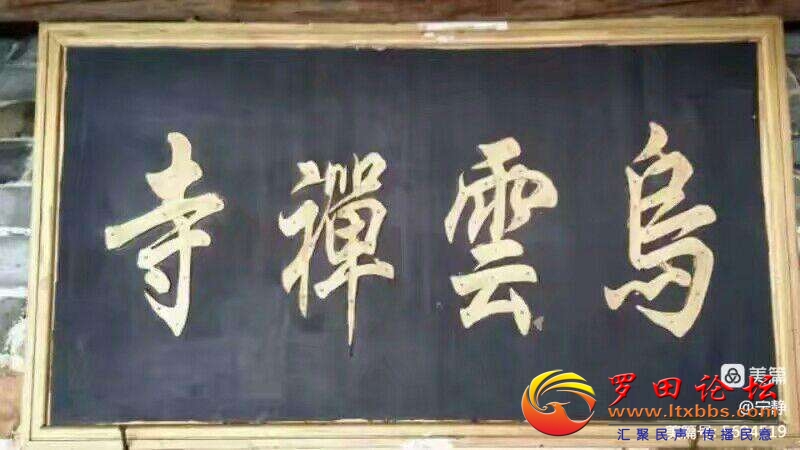 烏雲禪寺
美篇
罗田论坛
@宁静
www.ltxbbs.com
汇聚民声 传播民意